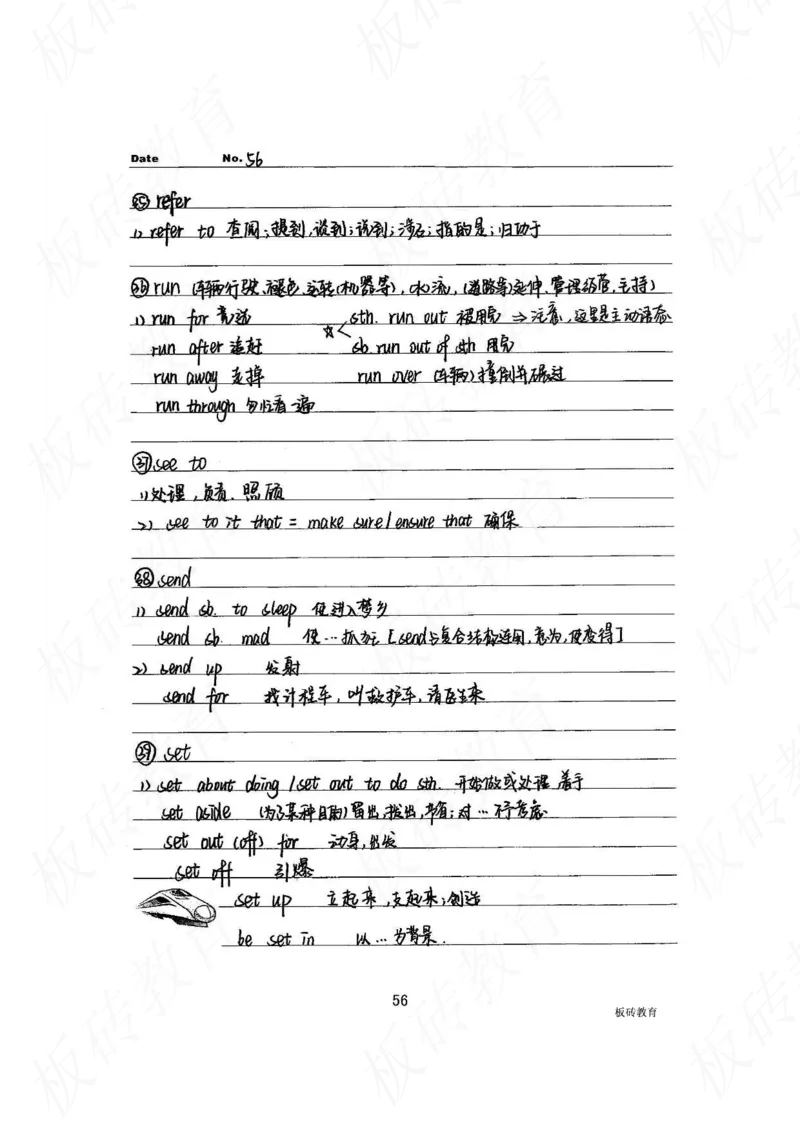 Date No. 56
㉟ refer
1) refer to 查阅；提到，谈到；说到；涉及；指的是；归功于
㊱ run (车辆行驶、褪色、运转(机器等)，(水)流，(道路等)延伸、管理经营、主持)
1) run for 竞选 ☆< sth. run out 被用完 ⇒ 注意，这里是主动语态
run after 追赶 sb. run out of sth 用完
run away 走掉 run over (车辆)撞倒并碾过
run through 匆忙看一遍
㊲ see to
1) 处理，负责、照顾
2) see to it that = make sure / ensure that 确保
㊳ send
1) send sb. to sleep 使进入梦乡
send sb. mad 使…抓狂 [send与复合结构连用，意为，使变得]
2) send up 发射
send for 找计程车，叫救护车，请医生来
㊴ set
1) set about doing / set out to do sth. 开始做或处理，着手
set aside (为了某种目的)留出，拨出，节省；对…不予考虑
set out (off) for 动身，出发
set off 引爆
set up 立起来，支起来；创造
be set in 以…为背景.
56
板砖教育
板砖教育